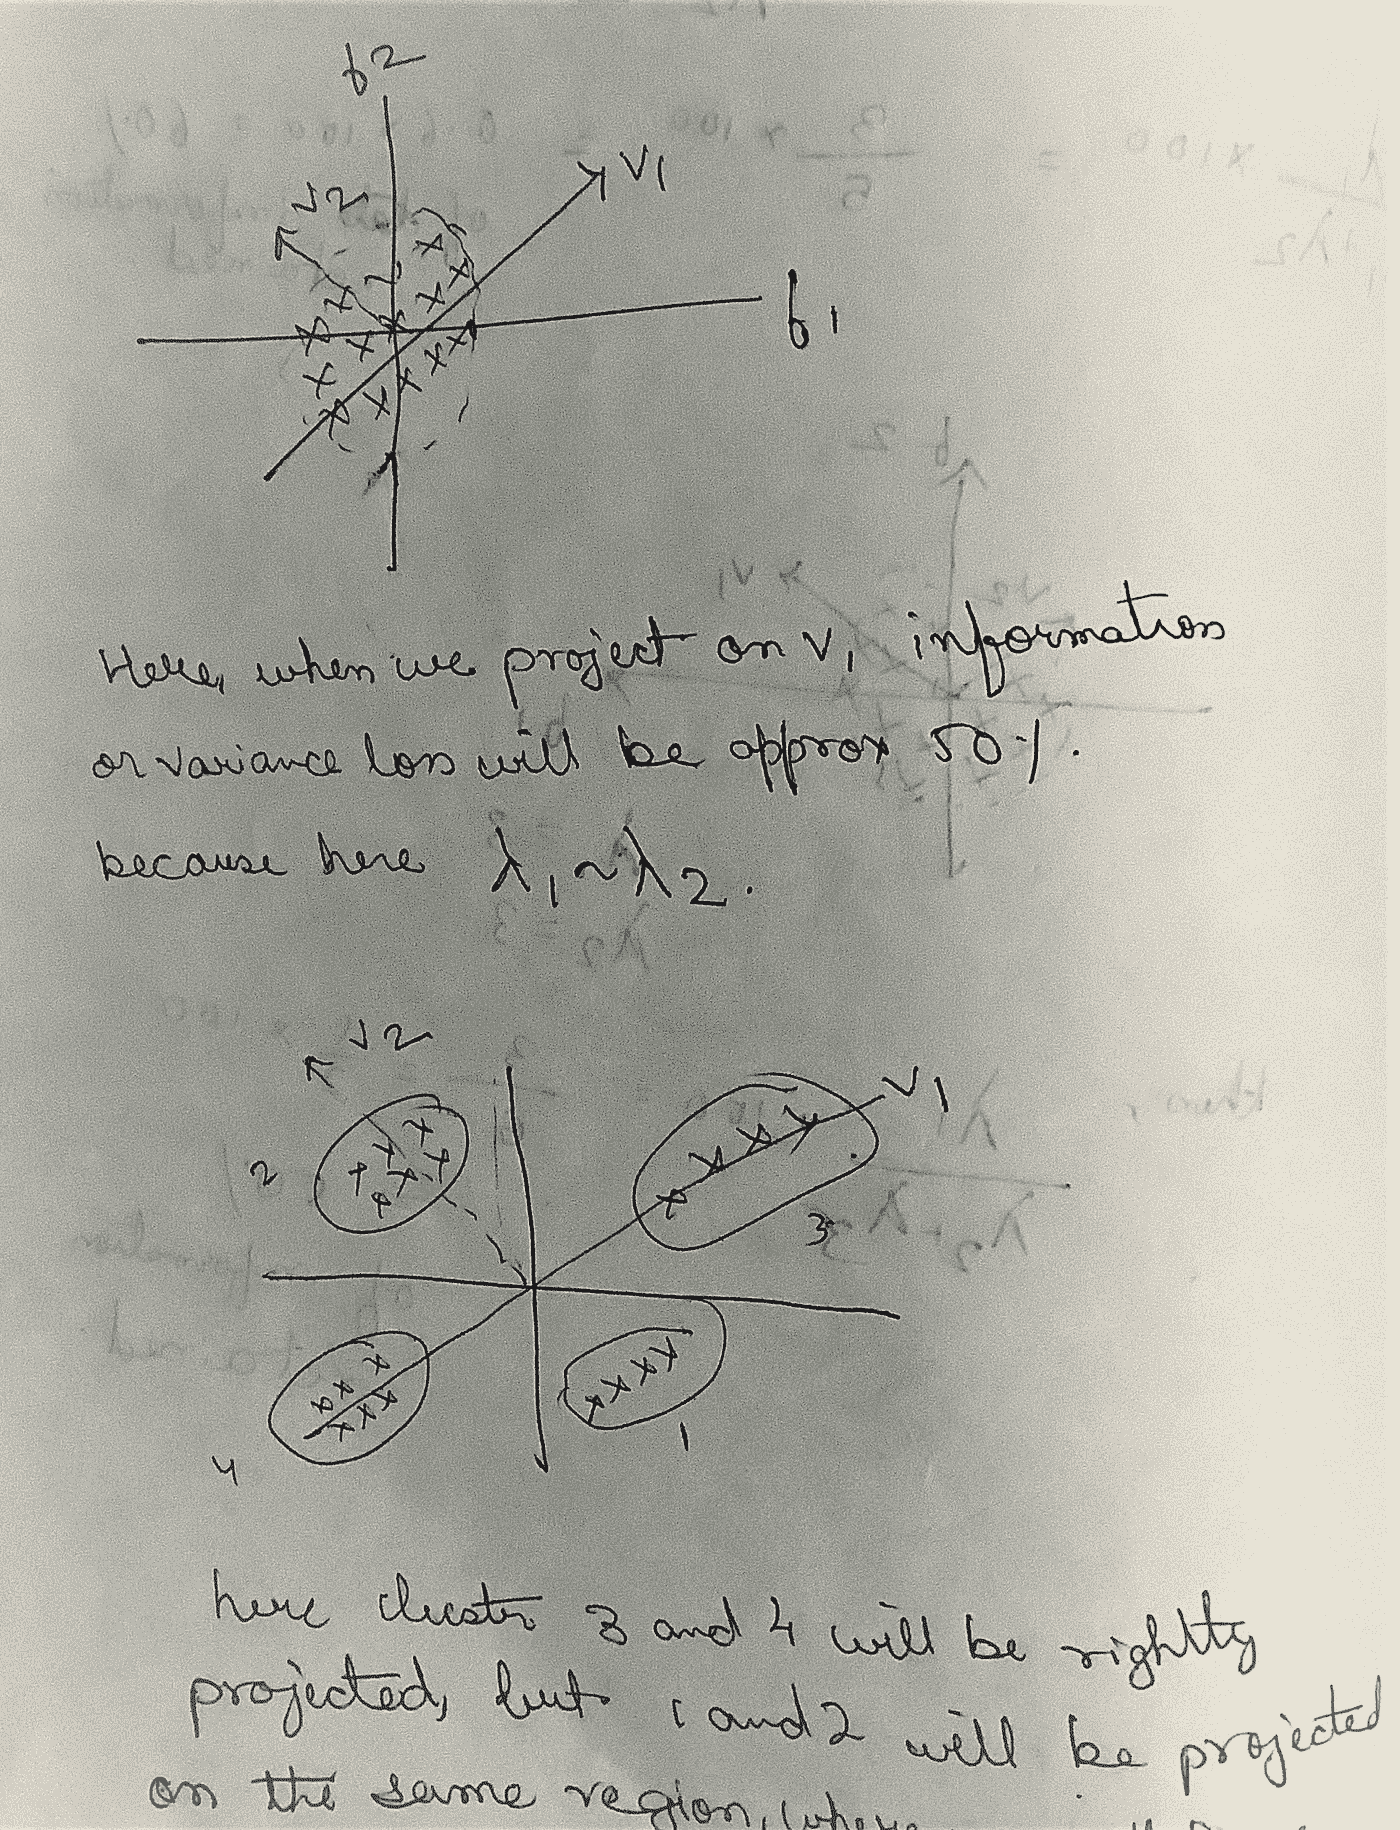 f2
V1
V2
f1
Here, when we project on V1 information
or variance loss will be approx 50%.
because here λ1 ~ λ2.
V2
V1
2
3
4
1
here cluster 3 and 4 will be rightly
projected, but 1 and 2 will be projected
on the same region, where